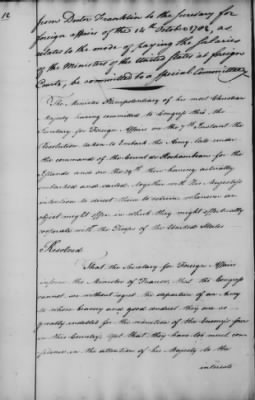 12
from Doctor Franklin to the Secretary for
foreign affairs of the 14th October 1782, as
relates to the mode of paying the Salaries
of the Ministers of the United States at foreign
Courts, be committed to a Special Committee
The Minister Plenipotentiary of his most Christian
Majesty having communicated to Congress thro' the
Secretary for Foreign Affairs on the 7th Instant the
Resolution taken to Embark the Army late under
the commands of the Count de Rochambeau for the
Islands and on the 29th their having actually
embarked and sailed, together with His Majesty's
intention to direct them to return whenever an
object might offer in which they might effectually
cooperate with the Troops of the United States
Resolved
That the Secretary for Foreign Affairs
inform the Minister of France, that tho' Congress
cannot see without regret the departure of an Army
to whose bravery and good conduct they are so
greatly indebted for the reduction of the Enemy's force
in this Country, yet that they have too much con
fidence in the attention of his Majesty to the
interests